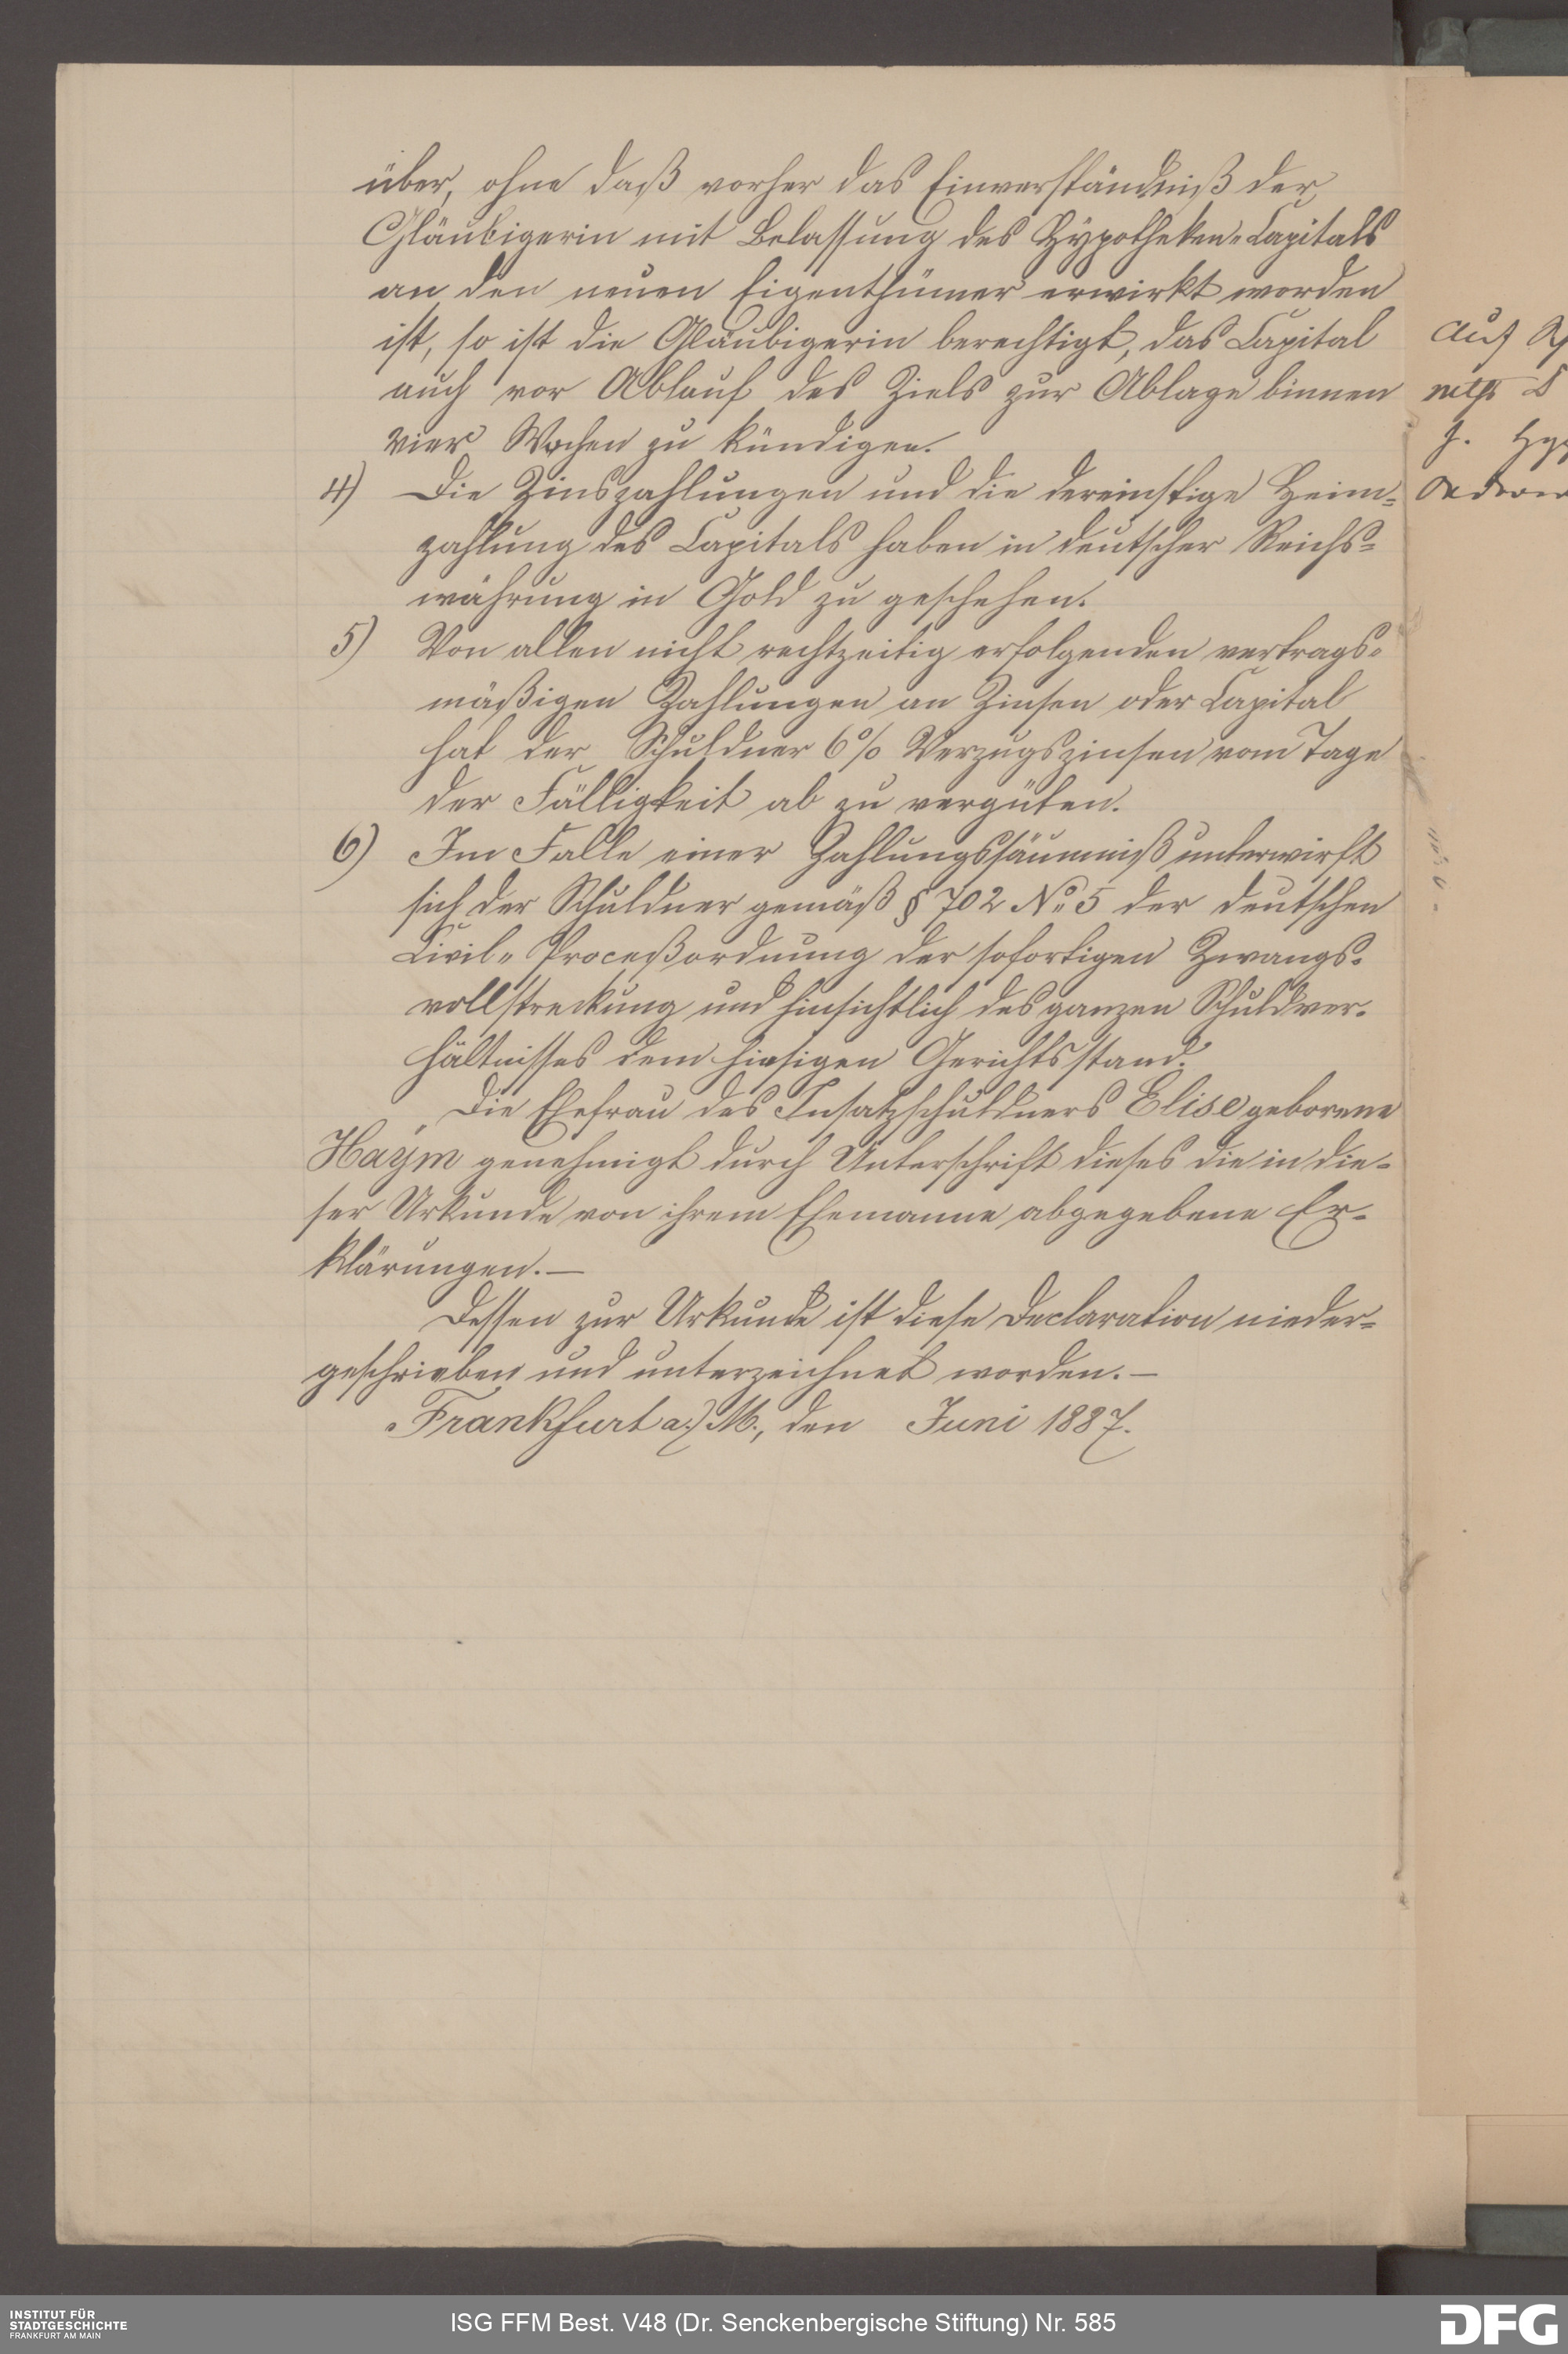 über, ohne daß vorher das Einverständniß der
Gläubigerin mit Belassung des Hypotheken-Capitals
an den neuen Eigenthümer erwirkt worden
ist, so ist die Gläubigerin berechtigt, das Capital
auch vor Ablauf des Ziels zur Ablage binnen
vier Wochen zu kündigen.
4) Die Zinszahlungen und die dereinstige Heim-
zahlung des Capitals haben in deutscher Reichs-
währung in Gold zu geschehen.
5) Von allen nicht rechtzeitig erfolgenden vertrags-
mäßigen Zahlungen an Zinsen oder Capital
hat der Schuldner 6% Verzugszinsen vom Tage
der Fälligkeit ab zu vergüten.
6) Im Falle einer Zahlungssäumniß unterwirft
sich der Schuldner gemäß § 702 No 5 der deutschen
Civil-Proceßordnung der sofortigen Zwangs-
vollstreckung und hinsichtlich des ganzen Schuldver-
hältnisses dem hiesigen Gerichtsstand.
Die Ehefrau des Insatzschuldners Elise geborene
Haym genehmigt durch Unterschrift dieses die in die-
ser Urkunde von ihrem Ehemanne abgegebene Er-
klärungen.—
Dessen zur Urkunde ist diese Declaration nieder-
geschrieben und unterzeichnet worden.—
Frankfurt a/M., den Juni 1887.
auf
INSTITUT FÜR
STADTGESCHICHTE
FRANKFURT AM MAIN
ISG FFM Best. V48 (Dr. Senckenbergische Stiftung) Nr. 585
DFG